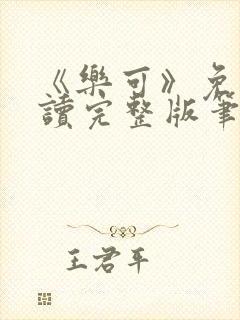 《樂可》免
讀完整版筆
王君平